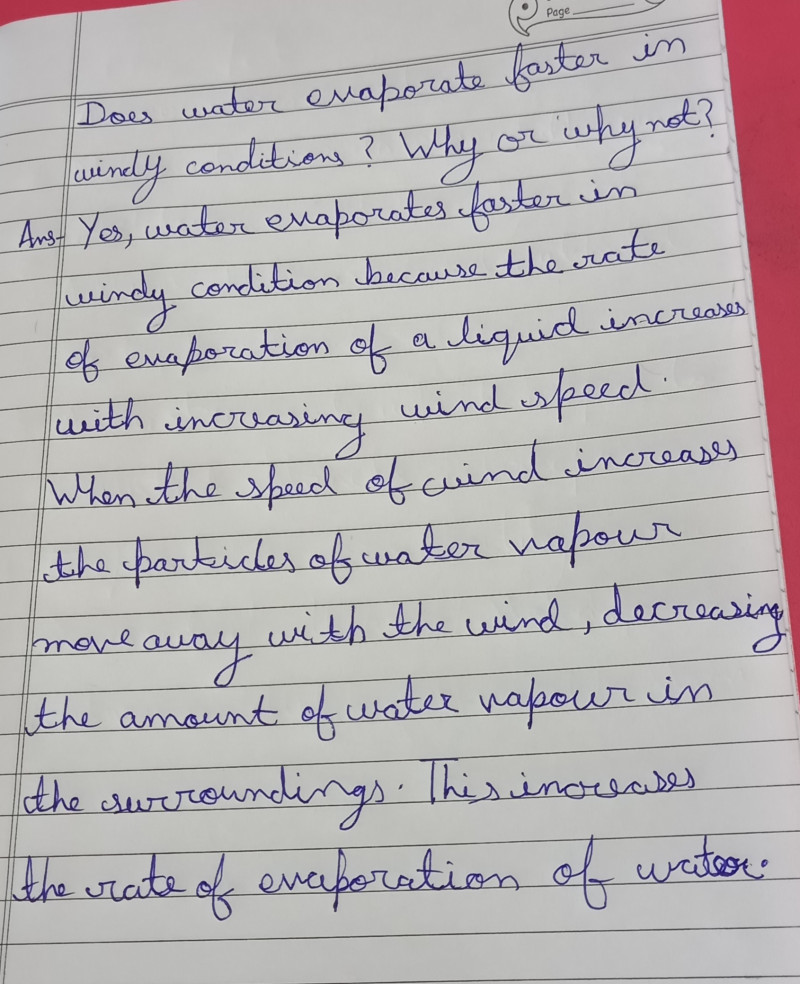 Page
Does water evaporate faster in
windy conditions? Why or why not?
Ans- Yes, water evaporates faster in
windy condition because the rate
of evaporation of a liquid increases
with increasing wind speed.
When the speed of wind increases
the particles of water vapour
move away with the wind, decreasing
the amount of water vapour in
the surroundings. This increases
the rate of evaporation of water.